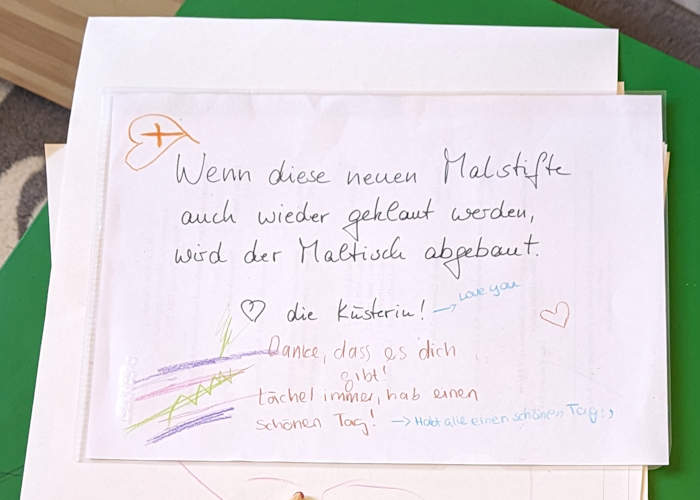 Wenn diese neuen Malstifte
auch wieder geklaut werden,
wird der Maltisch abgebaut.
♡ die Küsterin! → Love you
Danke, dass es dich
gibt!
Lächel immer, hab einen
schönen Tag! → Habt alle einen schönen Tag :)